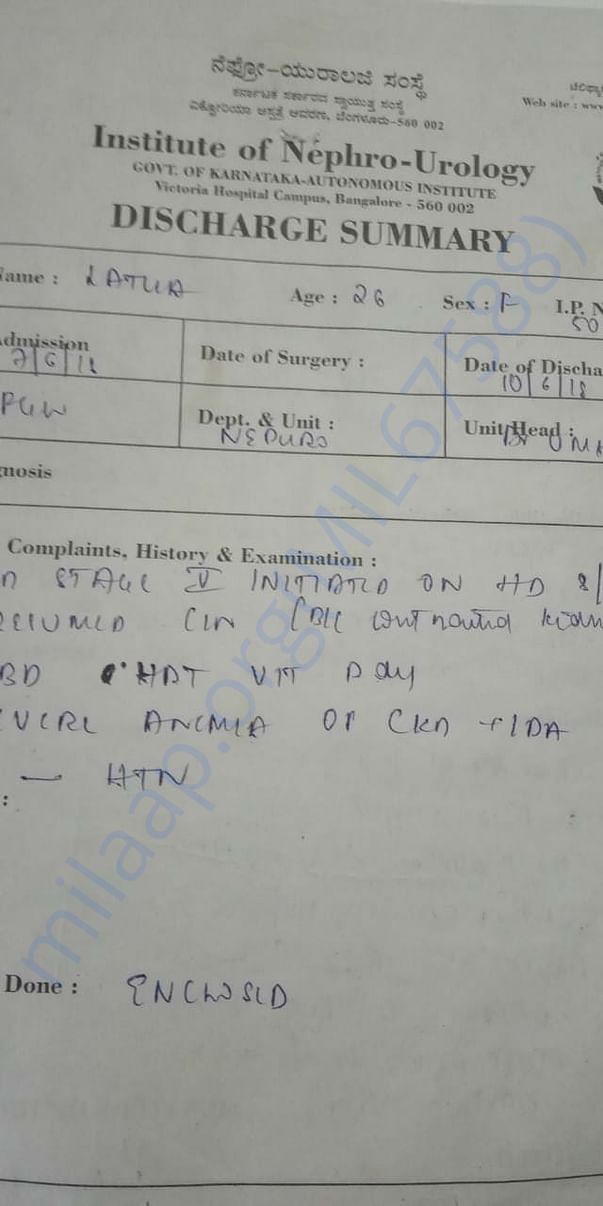 ನೆಫ್ರೋ-ಯುರಾಲಜಿ ಸಂಸ್ಥೆ
ಕರ್ನಾಟಕ ಸರ್ಕಾರದ ಸ್ವಾಯತ್ತ ಸಂಸ್ಥೆ
ವಿಕ್ಟೋರಿಯಾ ಆಸ್ಪತ್ರೆ ಆವರಣ, ಬೆಂಗಳೂರು-560 002
Web site : www
Institute of Nephro-Urology
GOVT. OF KARNATAKA-AUTONOMOUS INSTITUTE
Victoria Hospital Campus, Bangalore - 560 002
DISCHARGE SUMMARY
Name : Age : 26 Sex : F I.P. N
Admission Date of Surgery : Date of Discha
7/6/18 10/6/18
PGW Dept. & Unit : Unit Head :
NEPHRO
gnosis
Complaints, History & Examination :
D STAGE V INITIATED ON HD
BD
SEVERE ANEMIA OF CKD + IDA
— HTN
:
Done : ENCLOSED
milaap.org/MIL67588)